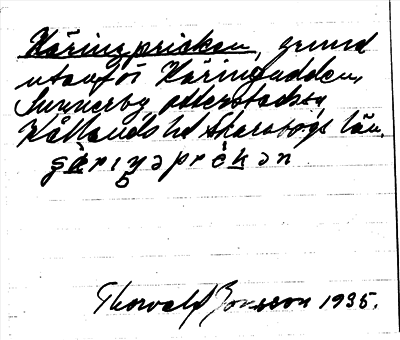 Käringpricken, grund
utanför Käringudden,
Sunnerby, Otterstads sn,
Kållands hd Skaraborgs län.
Thorvald Jonsson 1935.